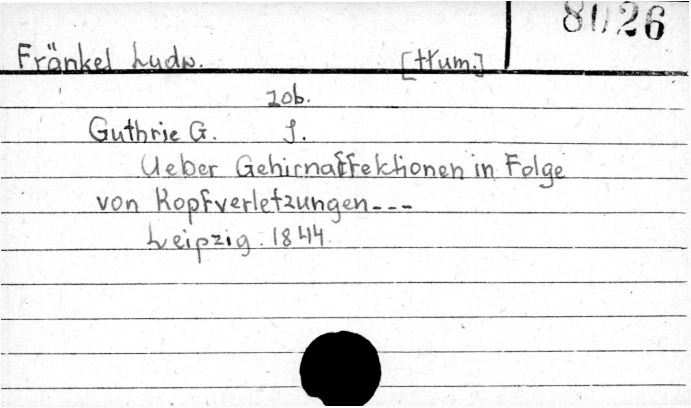 8026
Fränkel Ludw. [tłum.]
zob.
Guthrie G. J.
Ueber Gehirnaffektionen in Folge
von Kopfverletzungen---
Leipzig. 1844